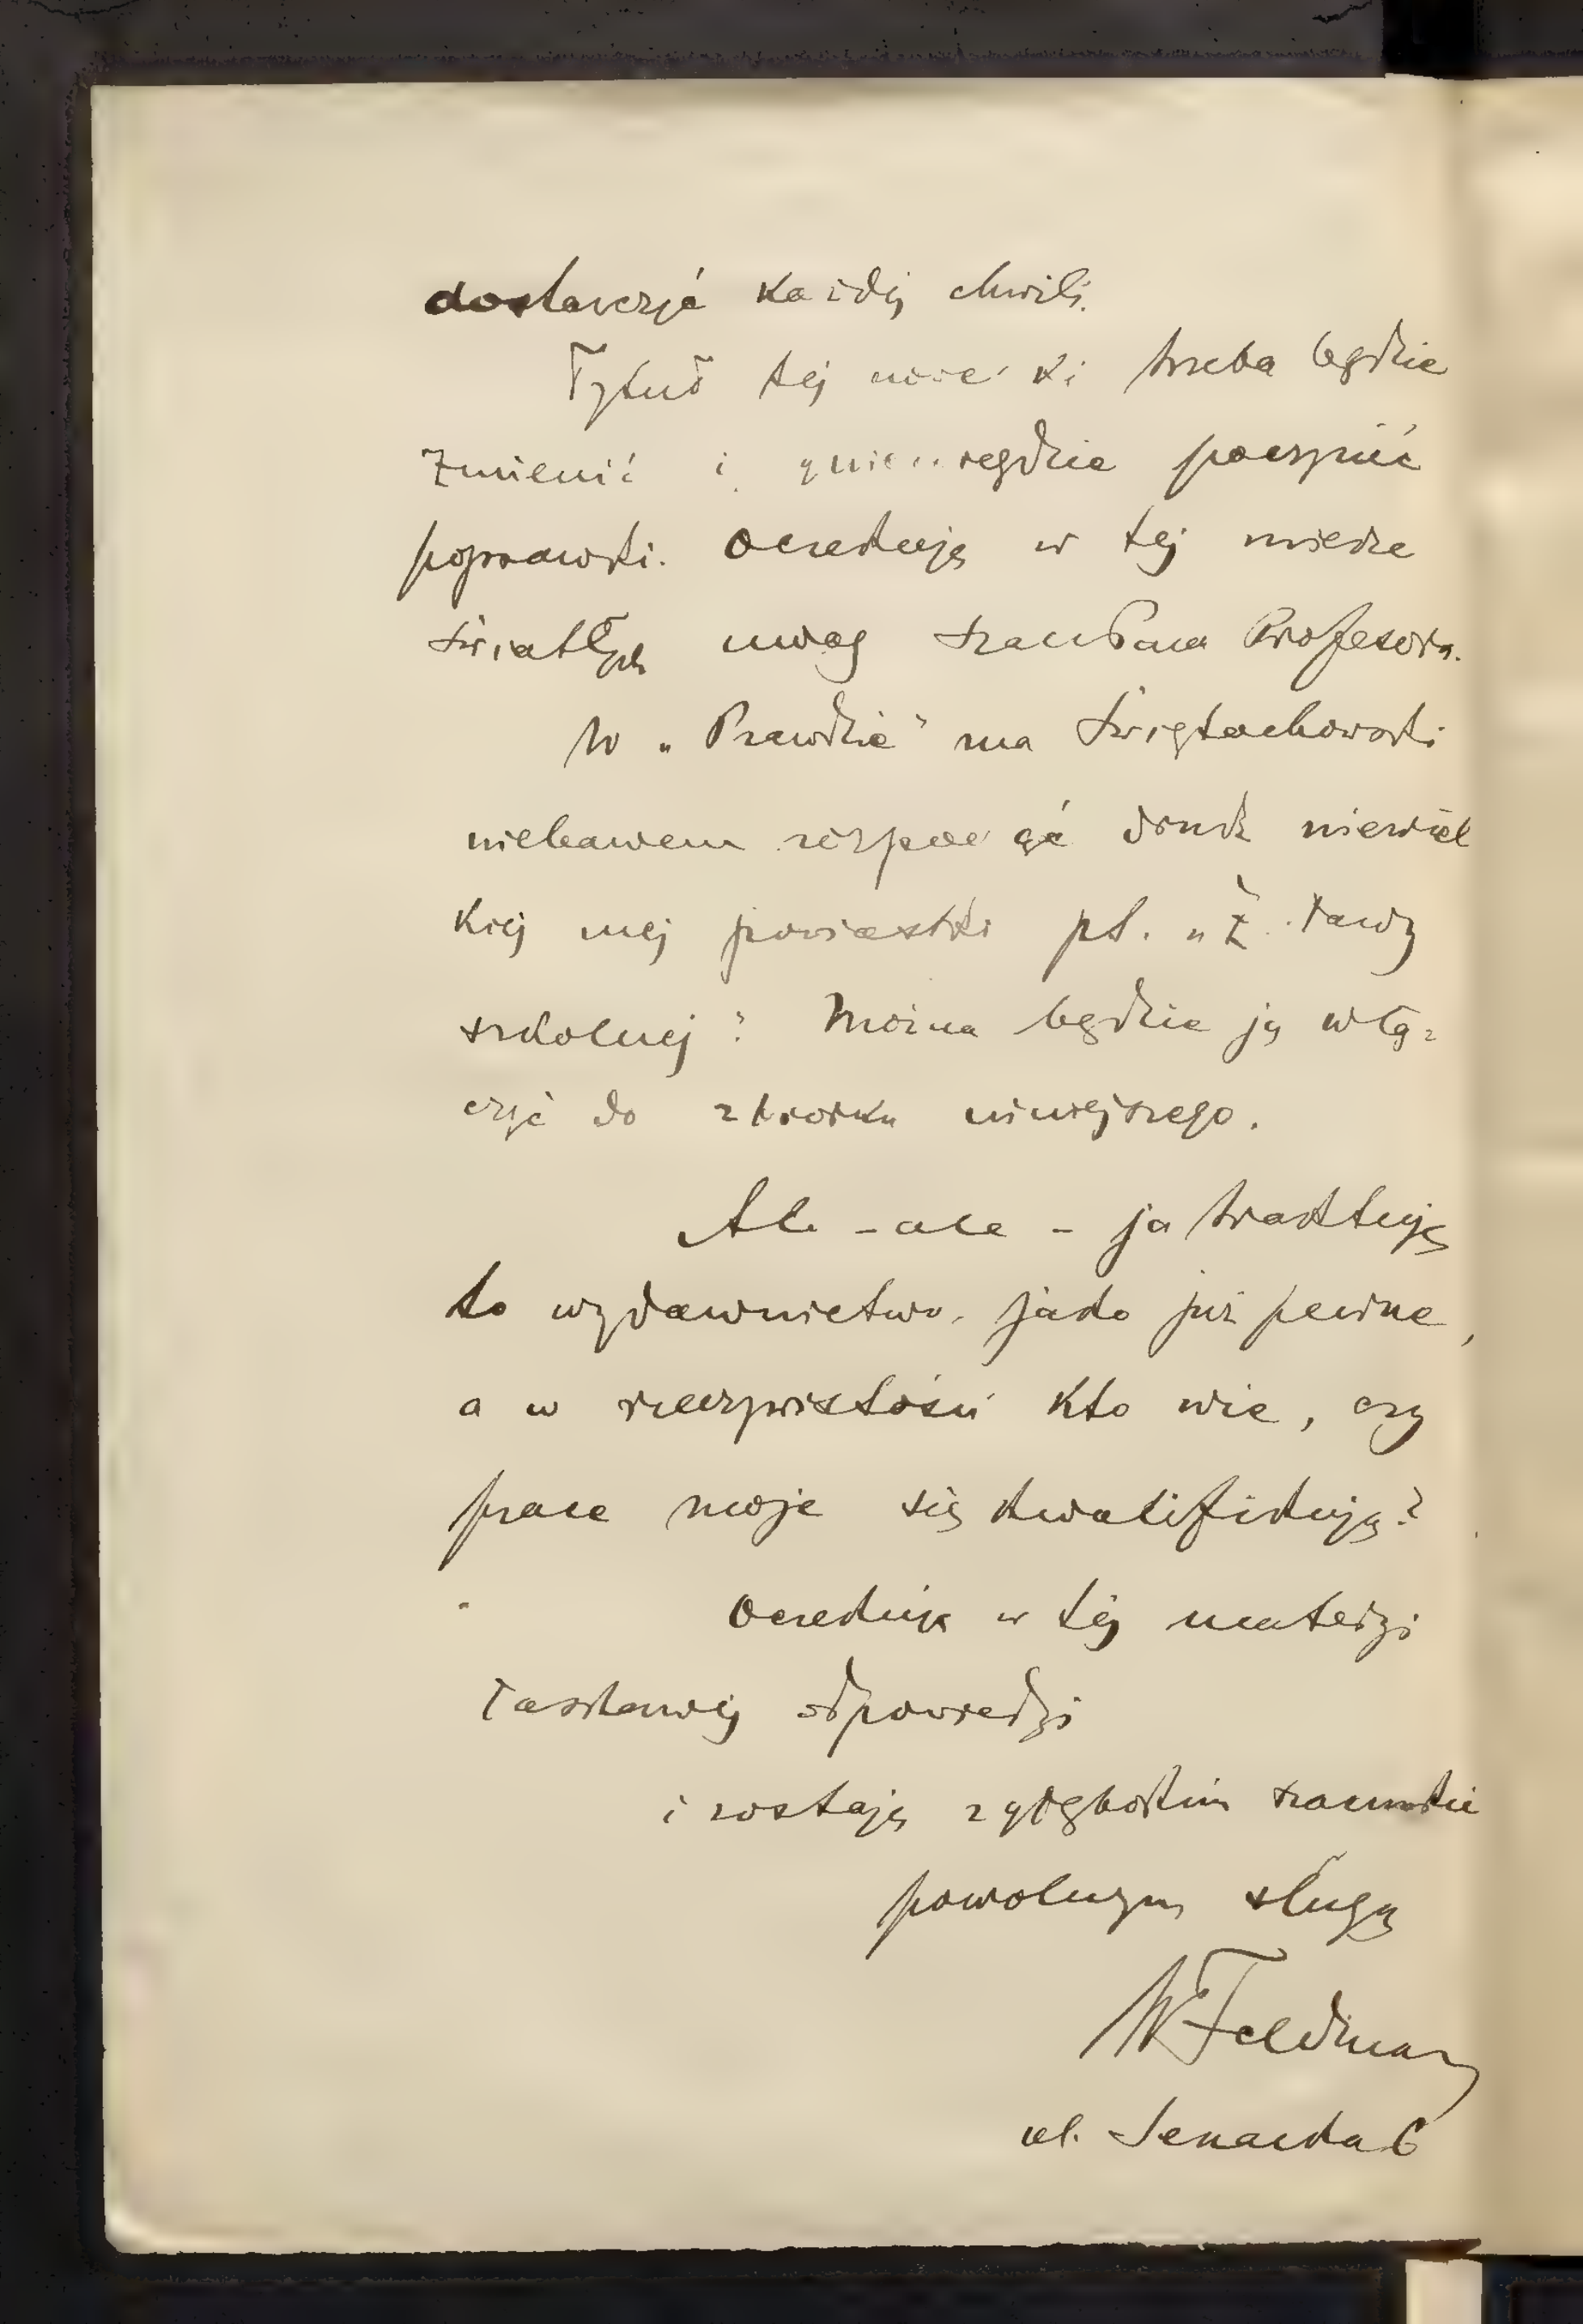 dostarczyć każdej chwili.
Tytuł tej trzeba będzie
zmienić i poczynić
poprawki. Oczekuję w tej mierze
światłych uwag Szan Pana Profesora.
W „Prawdzie" ma Świętochowski
niebawem rozpocząć druk niewiel
kiej mej powiastki pt. „Z ławy
szkolnej". Można będzie ją włą-
czyć do zbiorku niniejszego.
Ale - ale - ja traktuję
to wydawnictwo, jako już pewne,
a w rzeczywistości kto wie, czy
prace moje się kwalifikują?
Oczekuję w tej materyi
łaskawej odpowiedzi
i zostaję z głębokim szacunkiem
powolnym sługą
WFeldman
ul. Senacka 6